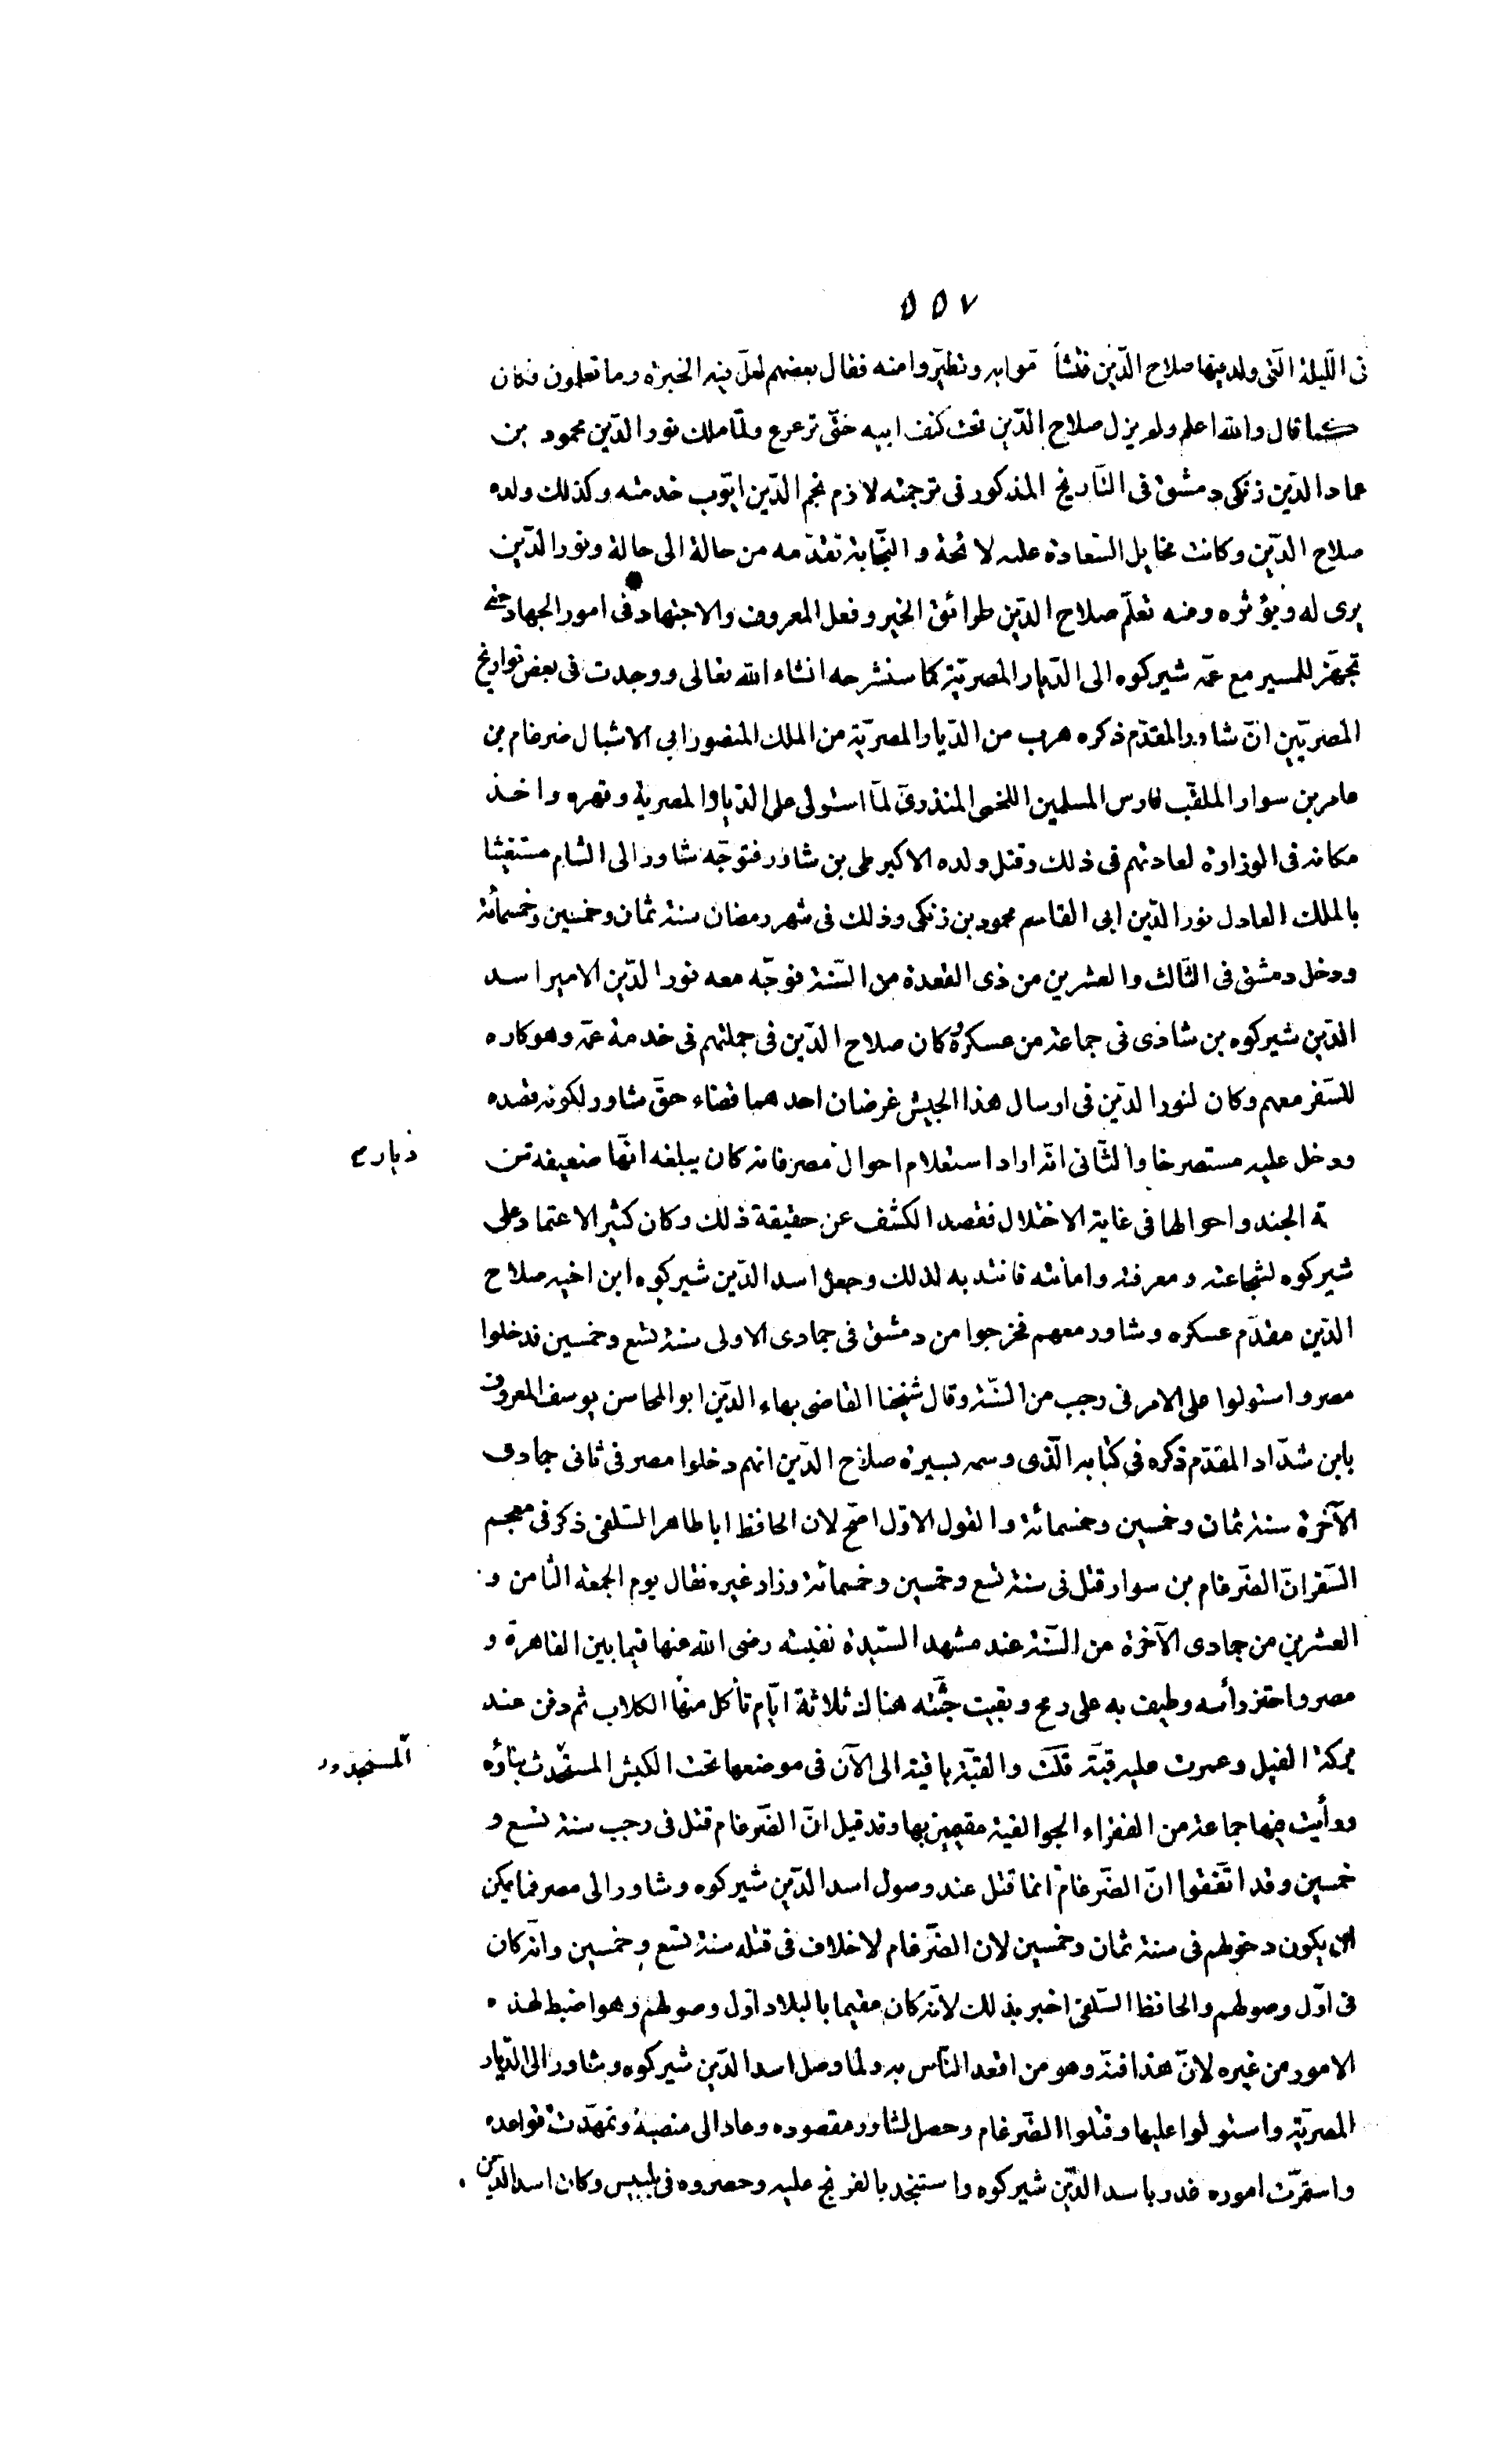 ٥٥٧
فى اللّيلة الّتى ولد فيها صلاح الدّين فتشأ موابه وتطيّروا منه فقال بعضهم لعلّ فيه الخيرة وما تعلمون فكان
كما قال والله اعلم ولم يزل صلاح الدّين تحت كنف ابيه حتّى ترعرع ولمّا ملك نور الدّين محمود بن
عماد الدّين زنكى دمشق فى التّاريخ المذكور فى ترجمته لازم نجم الدّين ايّوب خدمته وكذلك ولده
صلاح الدّين وكانت مخايل السّعادة عليه لائحة والنّجابة تقدّمه من حالة الى حالة ونور الدّين
يرى له ويؤثره ومنه تعلّم صلاح الدّين طرائق الخير وفعل المعروف والاجتهاد فى امور الجهاد حتى
تجهّز للمسير مع عمّه شيركوه الى الدّيار المصريّة كما سنشرحه انشاء الله تعالى ووجدت فى بعض تواريخ
المصريّين انّ شاور المقدّم ذكره هرب من الدّيار المصريّة من الملك المنصور ابي الاشبال ضرغام بن
عامر بن سوار الملقّب فارس المسلمين اللخمى المنذرىّ لمّا استولى على الدّيار المصرية وقهره واخذ
مكانه فى الوزارة لعادتهم فى ذلك وقتل ولده الاكبر طى بن شاور فتوجّه شاور الى الشام مستغيثا
بالملك العادل نور الدّين ابى القاسم محمود بن زنكى وذلك فى شهر رمضان سنة ثمان وخمسين وخمسمائة
ودخل دمشق فى الثّالث والعشرين من ذى القعدة من السّنة فوجّه معه نور الدّين الامير اسد
الدّين شيركوه بن شاذى فى جماعة من عسكره وكان صلاح الدّين فى جملتهم فى خدمة عمّه وهو كاره
للسّفر معهم وكان لنور الدّين فى ارسال هذا الجيش غرضان احدهما قضاء حقّ شاور لكونه قصده
ودخل عليه مستصرخا والثّانى انّه اراد استعلام احوال مصر فانه كان يبلغه انّها ضعيفة من
ة الجند واحوالها فى غاية الاختلال فقصد الكشف عن حقيقة ذلك وكان كثير الاعتماد على
شيركوه لشجاعته ومعرفته وامانته فانتدبه لذلك وجعل اسد الدّين شيركوه ابن اخيه صلاح
الدّين مقدّم عسكره وشاور معهم فخرجوا من دمشق فى جمادى الاولى سنة تسع وخمسين فدخلوا
مصر واستولوا على الامر فى رجب من السّنة وقال شيخنا القاضى بهاء الدّين ابو المحاسن يوسف المعروف
بابن شدّاد المقدّم ذكره فى كتابه الّذى وسمه بسيرة صلاح الدّين انهم دخلوا مصر فى ثانى جمادى
الآخرة سنة ثمان وخمسين وخمسمائة والقول الاوّل اصّح لان الحافظ ابا طاهر السّلفى ذكر فى معجم
السّفر انّ الضّرغام بن سوار قتل فى سنة تسع وخمسين وخمسمائة وزاد غيره فقال يوم الجمعة الثامن و
العشرين من جمادى الآخرة من السّنة عند مشهد السّيدة نفيسة رضى الله عنها فيما بين القاهرة و
مصر واحتز رأسه وطيف به على رمح وبقيت جثّته هناك ثلاثة ايّام تأكل منها الكلاب ثم دفن عند
بركة الفيل وعمرت عليه قبّة قلت والقبّة باقية الى الآن فى موضعها تحت الكبش المستحدث بناؤه
ورأيت فيها جماعة من الفقراء الجوالقية مقيمين بها وقد قيل انّ الضّرغام قتل فى رجب سنة تسع و
خمسين وقد اتّفقوا انّ الضّرغام انما قتل عند وصول اسد الدّين شيركوه وشاور الى مصر فما يمكن
ان يكون دخولهم فى سنة ثمان وخمسين لان الضّرغام لا خلاف فى قتله سنة تسع وخمسين وانّه كان
فى اوّل وصولهم والحافظ السّلفى اخبر بذلك لانّه كان مقيما بالبلاد اوّل وصولهم وهو اضبط لهذه
الامور من غيره لانّ هذا فنّه وهو من اقعد النّاس به ولما وصل اسد الدّين شيركوه وشاور الى الدّيار
المصريّة واستولوا عليها وقتلوا الضّرغام وحصل لشاور مقصوده وعاد الى منصبه وتمهّدت قواعده
واستقرّت اموره غدر باسد الدّين شيركوه واستنجد بالفرنج عليه وحصروه فى بلبيس وكان اسد الدّين